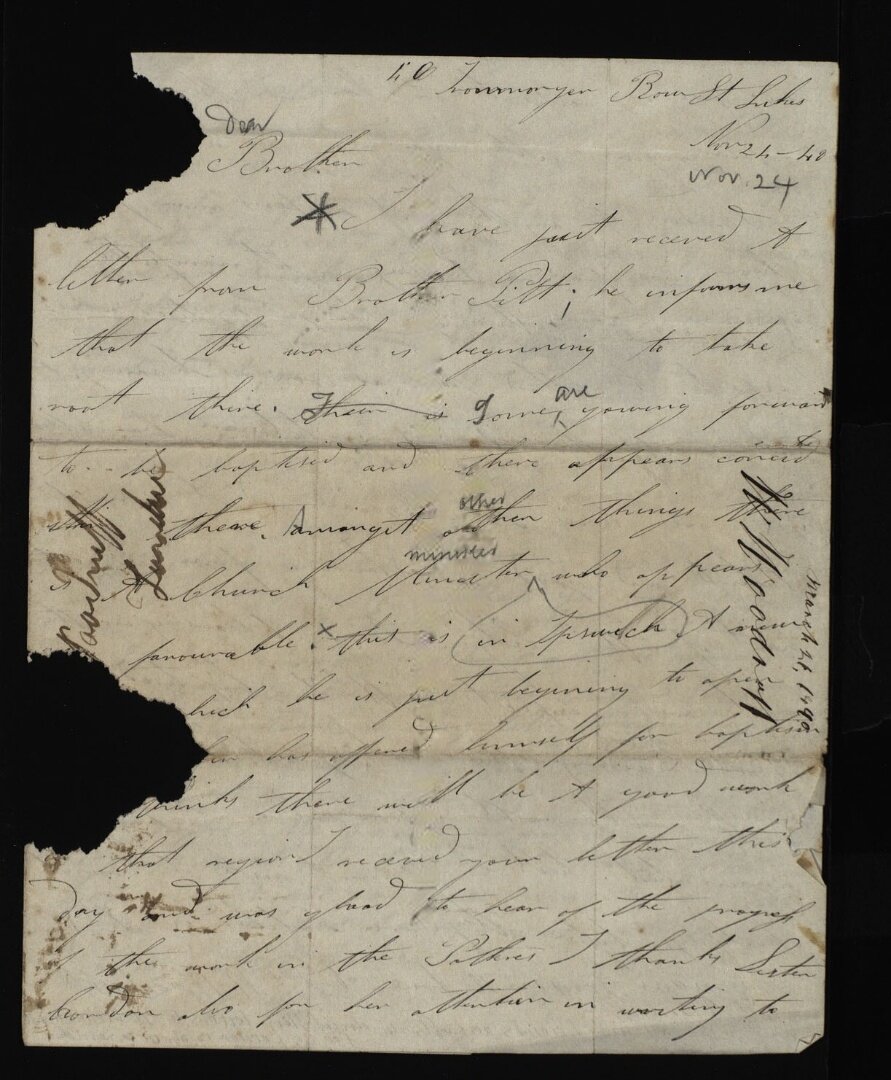 40 Ironmonger Row St Lukes
Nov 24 - 40
Nov. 24
Dear
Brother
I have just receved A
letter from Brother Pitt; he informs me
that the work is beginning to take
root thire. Their is Some, are gowing forward
to be baptised and there appears
there. amongst other other things there
minister
is A Church Minister who appears
favourable. this is in Ipswich A new
which he is just begining to open
has offered himself for baptism
thinks there will be A good work
that region I receved your letter this
day and was glad to hear of the progress
of the work in the Potries I thank Sister
Cordon also for her attention in writing to
Woodruff
London
W. Woodruff
March 26, 1840